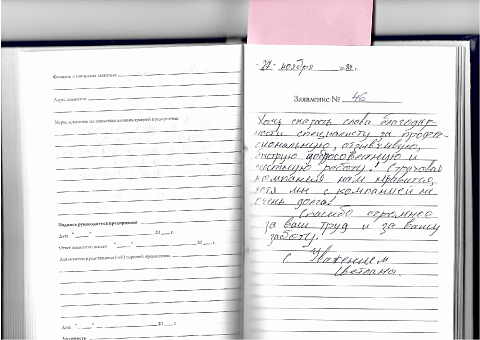 Фамилия и инициалы заявителя
Адрес заявителя
Меры, принятые по заявлению администрацией предприятия
Подпись руководителя предприятия
Дата " " 20 г.
Ответ заявителю послан " " 20 г.
Дата " " 20 г.
Должность
27 ноября
Заявление № 46
Хочу сказать слова благодар-
ности специалисту за профес-
сиональную, отзывчивую,
быструю добросовестную и
честную работу! Страховая
компания нам нравится,
хотя мы с компанией не
очень долго!
Спасибо огромное
за ваш труд и за вашу
заботу.
С Уважением
Светлана